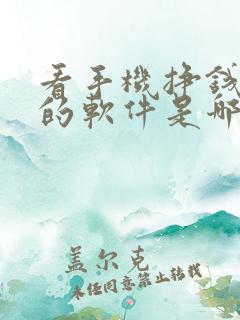 看手機掙錢
的軟件是哪
盖尔克
未经同意禁止转载